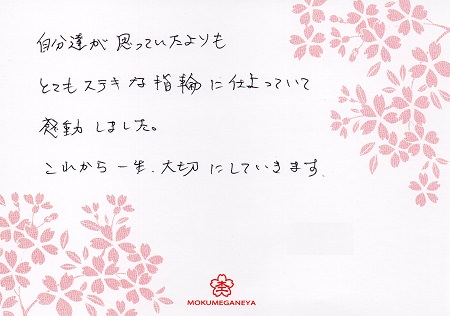 自分達が思っていたよりも
とてもステキな指輪に仕上っていて
感動しました。
これから一生、大切にしていきます。
杢
MOKUMEGANEYA